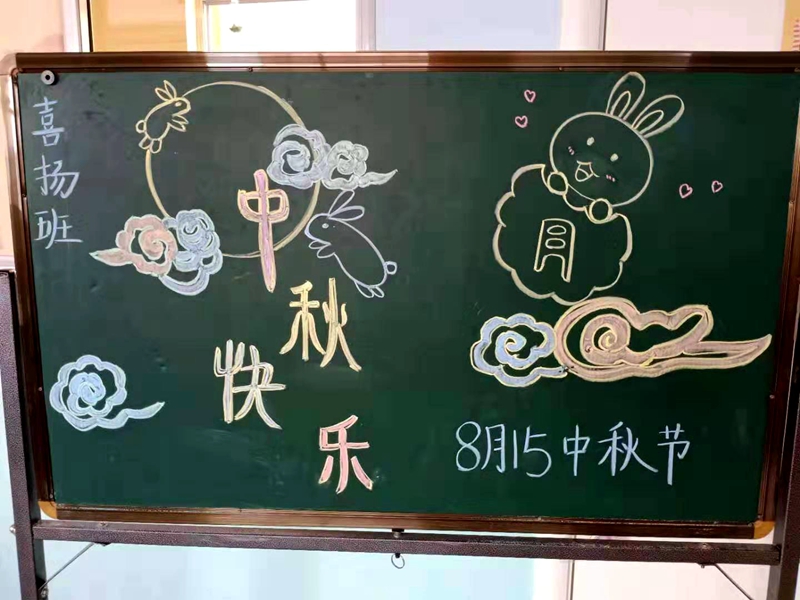 喜扬班
中秋快乐
月
8月15中秋节